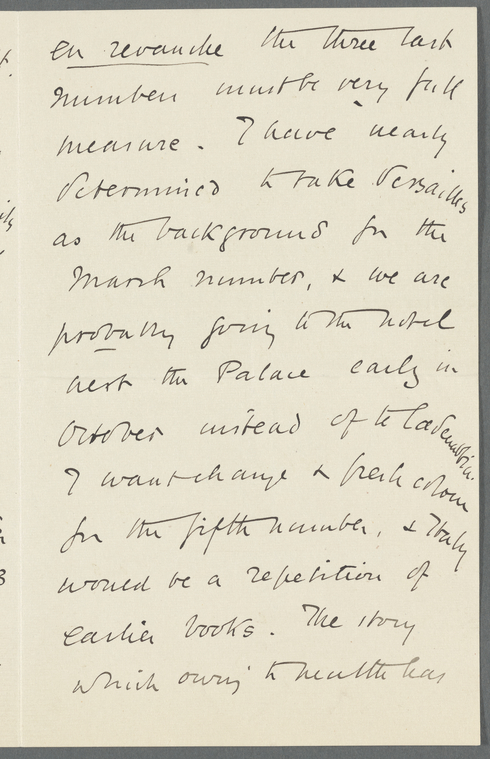 en revanche the three last
numbers must be very full
measure. I have nearly
determined to take Versailles
as the background for the
March number, & we are
probably going to the hotel
next the Palace early in
October instead of to Cadenabbia.
I want change & fresh colour
for the fifth number, & Italy
would be a repetition of
earlier books. The story
which owing to health has